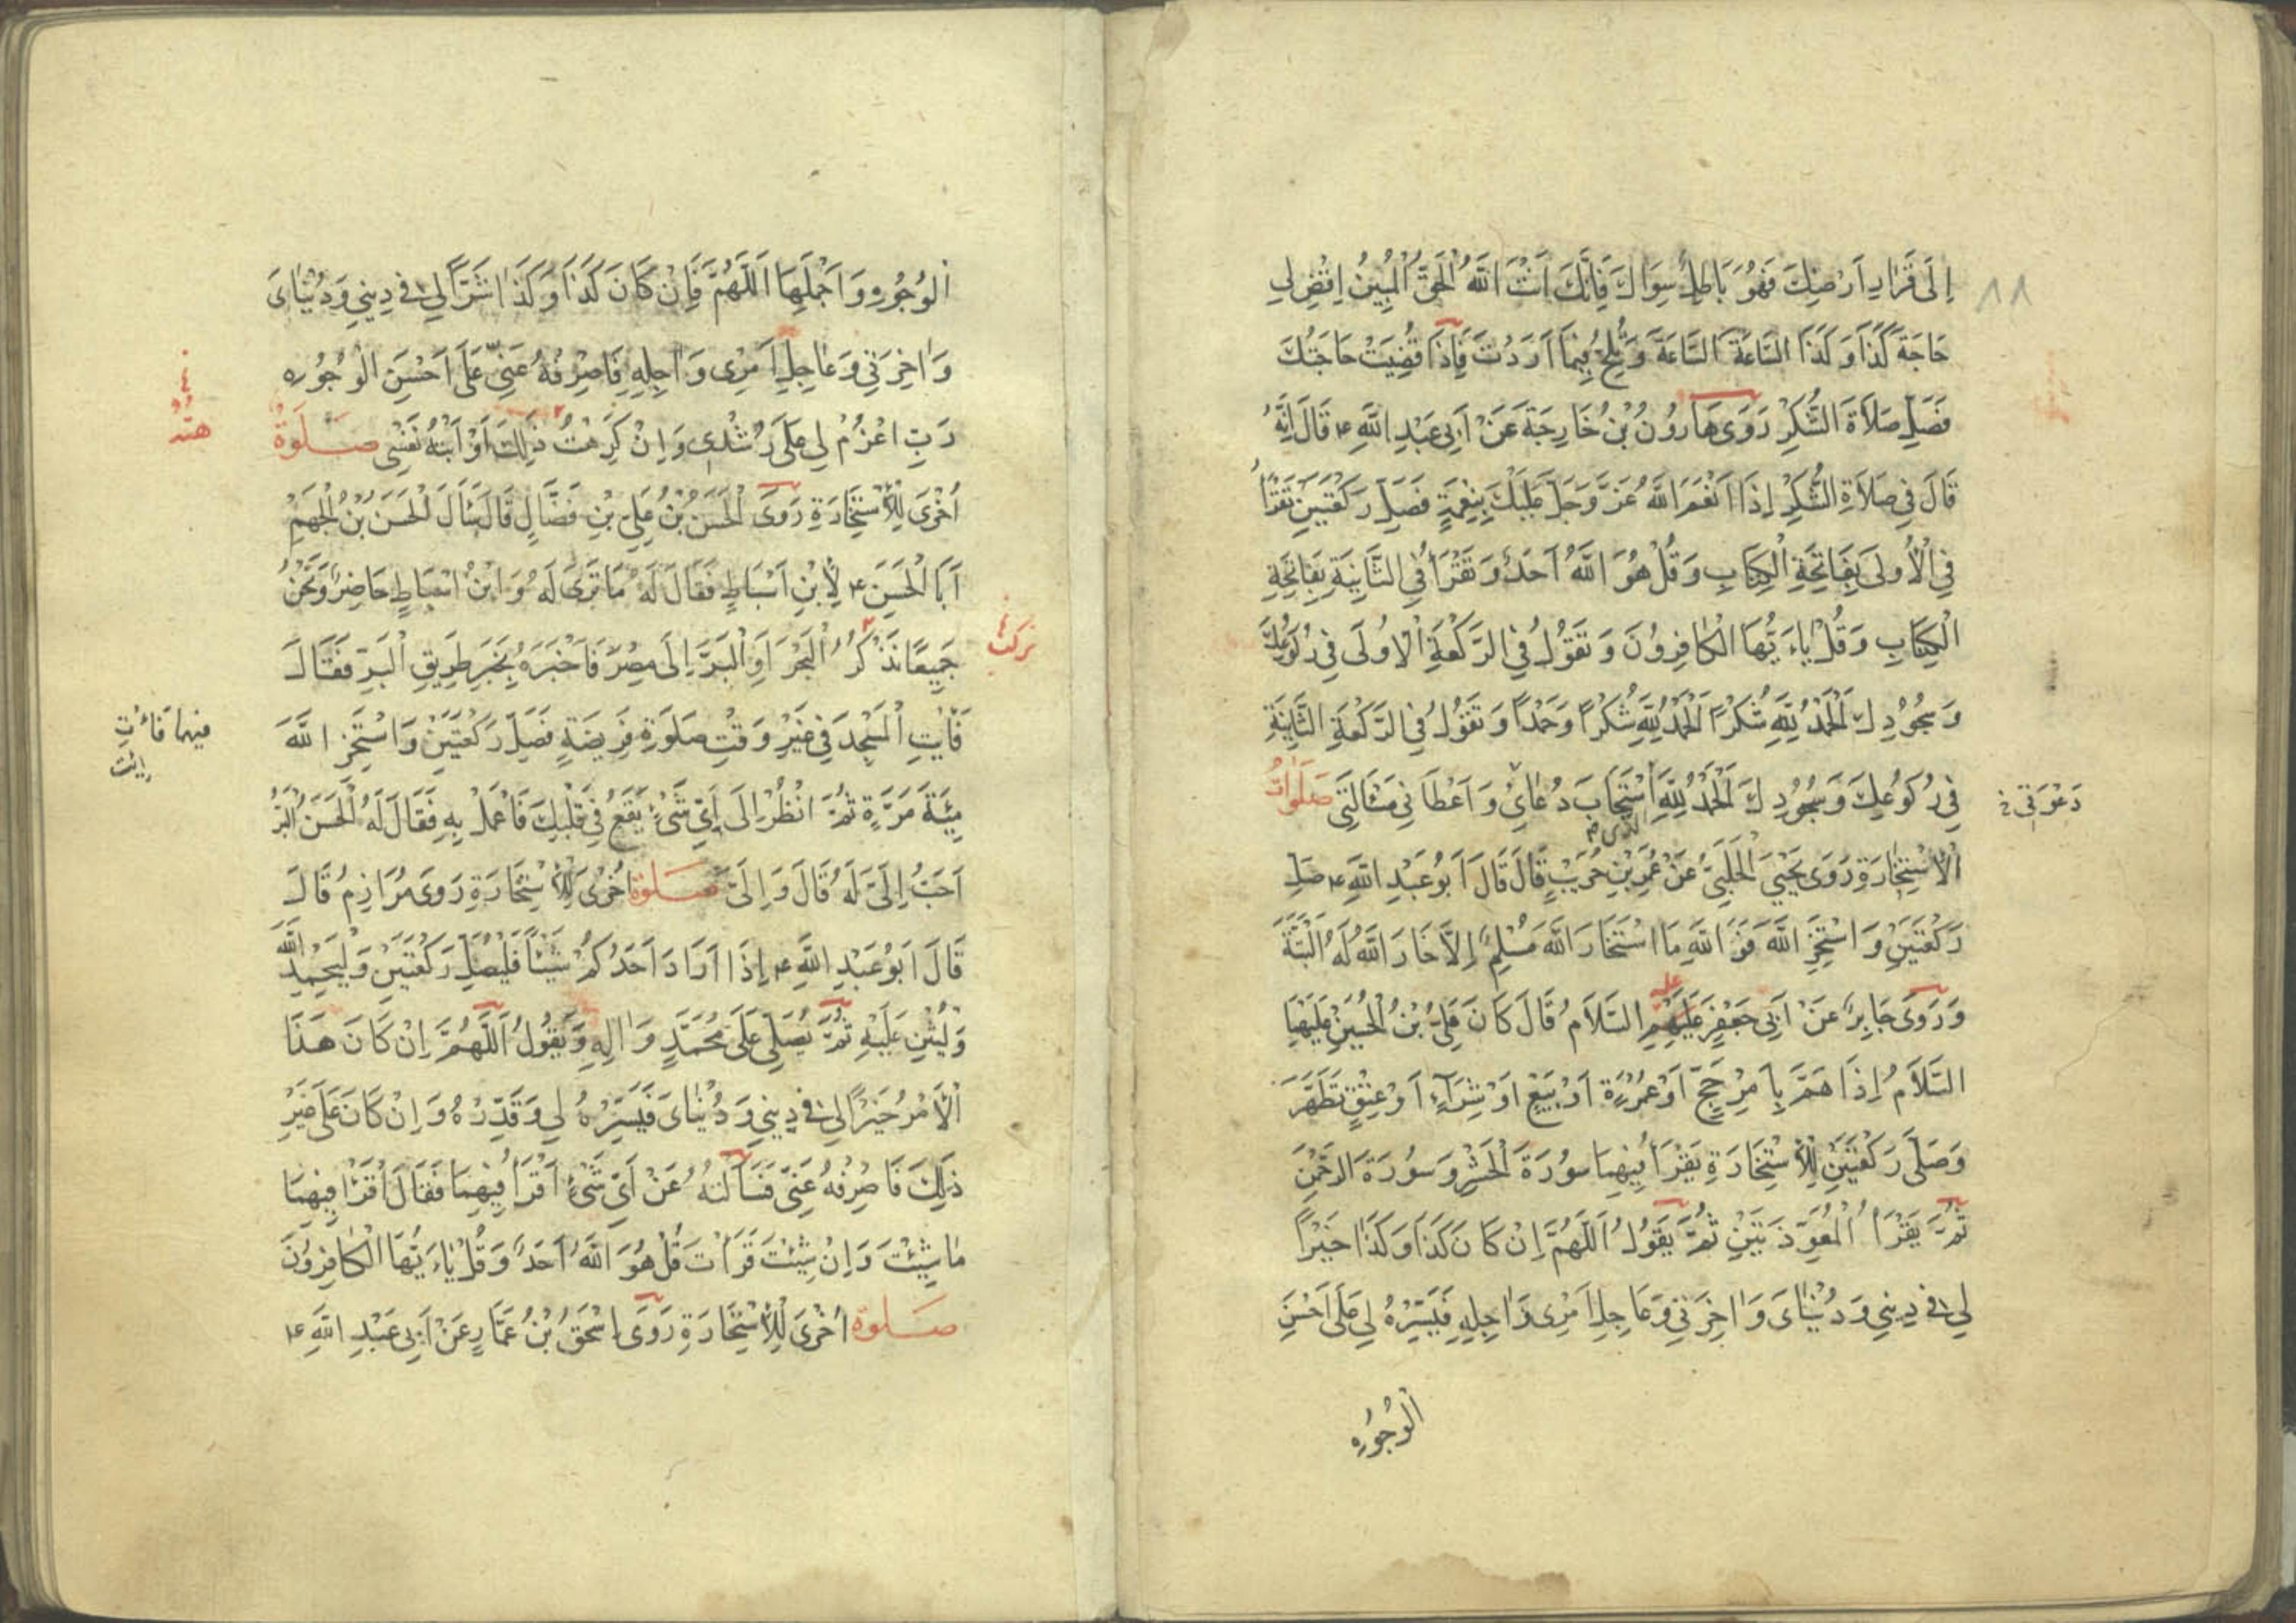 ٨٨
إِلَى قَرَارِ اَرْضِكَ فَهُوَ بَاطِلٌ سِوَاكَ فَاِنَّكَ اَنْتَ اللَّهُ الْحَقُّ الْمُبِينُ اِقْضِ لِي
حَاجَةَ كَذَا وَكَذَا السَّاعَةَ السَّاعَةَ وَتُلِحُّ فِيمَا اَرَدْتَ فَاِذَا قُضِيَتْ حَاجَتُكَ
فَصَلِّ صَلَاةَ الشُّكْرِ رَوَى هَارُونُ بْنُ خَارِجَةَ عَنْ اَبِي عَبْدِ اللَّهِ ع قَالَ اِنَّهُ
قَالَ فِي صَلَاةِ الشُّكْرِ اِذَا اَنْعَمَ اللَّهُ عَزَّ وَجَلَّ عَلَيْكَ بِنِعْمَةٍ فَصَلِّ رَكْعَتَيْنِ تَقْرَأُ
فِي الْاُولَى بِفَاتِحَةِ الْكِتَابِ وَقُلْ هُوَ اللَّهُ اَحَدٌ وَتَقْرَأُ فِي الثَّانِيَةِ بِفَاتِحَةِ
الْكِتَابِ وَقُلْ يَاءَيُّهَا الْكَافِرُونَ وَتَقُولُ فِي الرَّكْعَةِ الْاُولَى فِي رُكُوعِكَ
وَسُجُودِكَ اَلْحَمْدُ لِلَّهِ شُكْرًا اَلْحَمْدُ لِلَّهِ شُكْرًا وَحَمْدًا وَتَقُولُ فِي الرَّكْعَةِ الثَّانِيَةِ
فِي رُكُوعِكَ وَسُجُودِكَ اَلْحَمْدُ لِلَّهِ اسْتَجَابَ دُعَائِي وَاَعْطَانِي مَسْأَلَتِي صَلَوَاتُ
دَعْوَتِي خ
الذى
الْاِسْتِخَارَةِ رَوَى يَحْيَى الْحَلَبِيُّ عَنْ عُمَرَ بْنِ حُرَيْثٍ قَالَ قَالَ اَبُو عَبْدِ اللَّهِ ع صَلِّ
رَكْعَتَيْنِ وَاسْتَخِرِ اللَّهَ فَوَ اللَّهِ مَا اسْتَخَارَ اللَّهَ مُسْلِمٌ اِلَّا خَارَ اللَّهُ لَهُ الْبَتَّةَ
وَرَوَى جَابِرٌ عَنْ اَبِي جَعْفَرٍ عَلَيْهِمِ السَّلَامُ قَالَ كَانَ عَلِيُّ بْنُ الْحُسَيْنِ عَلَيْهِمَا
السَّلَامُ اِذَا هَمَّ بِاَمْرِ حَجٍّ اَوْ عُمْرَةٍ اَوْ بَيْعٍ اَوْ شِرَاءٍ اَوْ عِتْقٍ تَطَهَّرَ
وَصَلَّى رَكْعَتَيْنِ لِلْاِسْتِخَارَةِ يَقْرَأُ فِيهِمَا سُورَةَ الْحَشْرِ وَسُورَةَ الرَّحْمٰنِ
ثُمَّ يَقْرَأُ الْمُعَوِّذَتَيْنِ ثُمَّ يَقُولُ اَللَّهُمَّ اِنْ كَانَ كَذَا وَكَذَا خَيْرًا
لِي فِي دِينِي وَدُنْيَايَ وَاٰخِرَتِي وَعَاجِلِ اَمْرِي وَاٰجِلِهِ فَيَسِّرْهُ لِي عَلَى اَحْسَنِ
الْوُجُوهِ
اَلْوُجُوهِ وَاَجْمَلِهَا اَللَّهُمَّ فَاِنْ كَانَ كَذَا وَكَذَا شَرًّا لِي فِي دِينِي وَدُنْيَايَ
وَاٰخِرَتِي وَعَاجِلِ اَمْرِي وَاٰجِلِهِ فَاصْرِفْهُ عَنِّي عَلَى اَحْسَنِ الْوُجُوهِ
رَبِّ اعْزِمْ لِي عَلَى رُشْدِي وَاِنْ كَرِهْتُ ذٰلِكَ اَوْ اَبَتْهُ نَفْسِي صَلٰوةٌ
اُخْرَى لِلْاِسْتِخَارَةِ رَوَى الْحَسَنُ بْنُ عَلِيِّ بْنِ فَضَّالٍ قَالَ سَأَلَ الْحَسَنُ بْنُ الْجَهْمِ
اَبَا الْحَسَنِ ع لِابْنِ اَسْبَاطٍ فَقَالَ لَهُ مَا تَرَى لَهُ وَابْنُ اَسْبَاطٍ حَاضِرٌ وَنَحْنُ
جَمِيعًا نَذْكُرُ الْبَحْرَ اَوِ الْبَرَّ اِلَى مِصْرَ فَاَخْبَرَهُ بِخَبَرِ طَرِيقِ الْبَرِّ فَقَالَ
فَأْتِ الْمَسْجِدَ فِي غَيْرِ وَقْتِ صَلٰوةِ فَرِيضَةٍ فَصَلِّ رَكْعَتَيْنِ وَاسْتَخِرِ اللَّهَ
مِئَةَ مَرَّةٍ ثُمَّ انْظُرْ اِلَى اَيِّ شَيْءٍ يَقَعُ فِي قَلْبِكَ فَاعْمَلْ بِهِ فَقَالَ لَهُ الْحَسَنُ الْبَرُّ
اَحَبُّ اِلَيَّ لَهُ قَالَ وَاِلَيَّ صَلٰوةٌ اُخْرَى لِلْاِسْتِخَارَةِ رَوَى مُرَازِمٌ قَالَ
قَالَ اَبُو عَبْدِ اللَّهِ ع اِذَا اَرَادَ اَحَدُكُمْ شَيْئًا فَلْيُصَلِّ رَكْعَتَيْنِ وَلْيَحْمِدِ اللَّهَ
وَلْيُثْنِ عَلَيْهِ ثُمَّ يُصَلِّي عَلَى مُحَمَّدٍ وَاٰلِهِ وَيَقُولُ اَللَّهُمَّ اِنْ كَانَ هَذَا
الْاَمْرُ خَيْرًا لِي فِي دِينِي وَدُنْيَايَ فَيَسِّرْهُ لِي وَقَدِّرْهُ وَاِنْ كَانَ عَلَى غَيْرِ
ذٰلِكَ فَاصْرِفْهُ عَنِّي فَسَأَلْتُهُ عَنْ اَيِّ شَيْءٍ اَقْرَأُ فِيهِمَا فَقَالَ اقْرَأْ فِيهِمَا
مَا شِئْتَ وَاِنْ شِئْتَ قَرَأْتَ قُلْ هُوَ اللَّهُ اَحَدٌ وَقُلْ يَاءَيُّهَا الْكَافِرُونَ
صَلٰوةٌ اُخْرَى لِلْاِسْتِخَارَةِ رَوَى اِسْحٰقُ بْنُ عَمَّارٍ عَنْ اَبِي عَبْدِ اللَّهِ ع